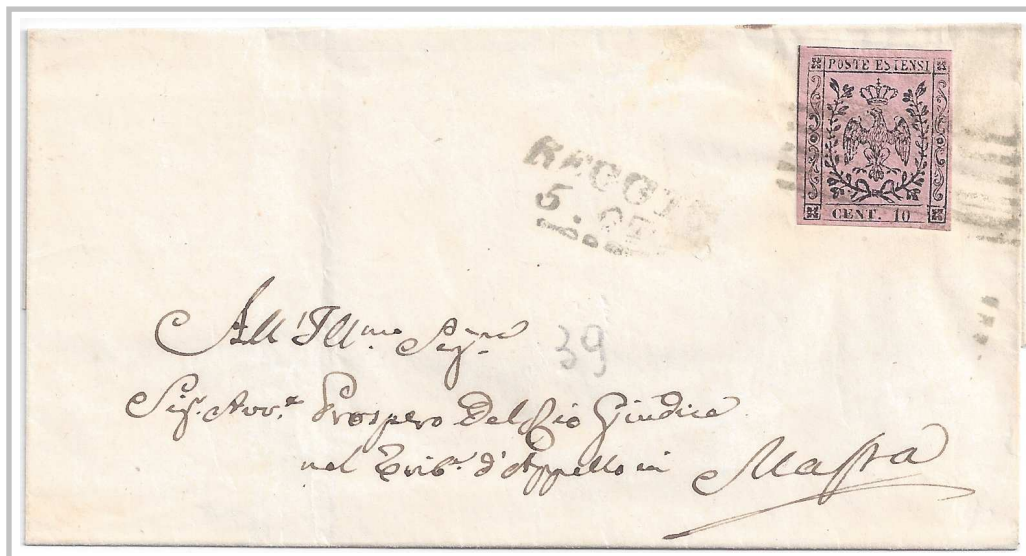 POSTE ESTENSI
CENT. 10
REGGIO
5.
All'Ill.mo Sig.re
39
Sig. Avv.º Prospero Del Rio Giudice
nel Trib.e d'Appello in
Massa